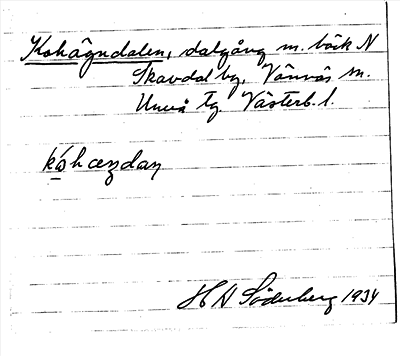 Kohägndalen, dalgång m. bäck N
Skavdal by, Vännäs sn.
Umeå tg. Västerb. l.
kóhæŋdaŋ
H A Söderberg 1934